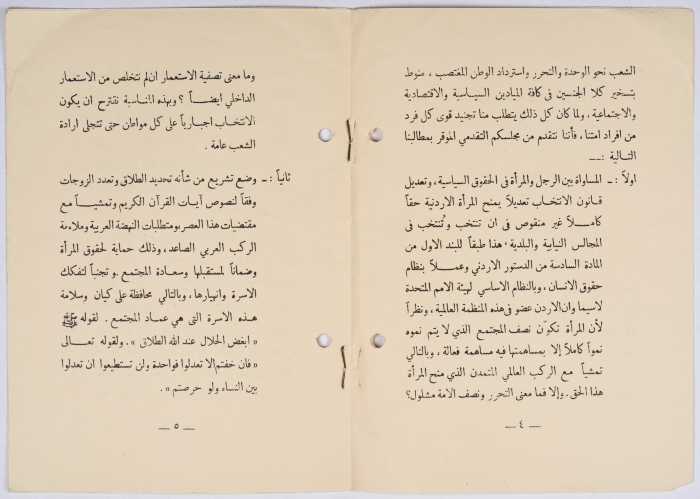 الشعب نحو الوحدة والتحرر واسترداد الوطن المغتصب ، منوط
بتسخير كلا الجنسين في كافة الميادين السياسية والاقتصادية
والاجتماعية ، ولما كان كل ذلك يتطلب منا تجنيد قوى كل فرد
من افراد امتنا ، فأننا نتقدم من مجلسكم التقدمي الموقر بمطالبنا
التالية : —
اولاً : ـ المساواة بين الرجل والمرأة في الحقوق السياسية ، وتعديل
قانون الانتخاب تعديلاً يمنح المرأة الاردنية حقاً
كاملاً غير منقوص في ان تنتخب وتُنتخب في
المجالس النيابية والبلدية ، هذا طبقاً للبند الاول من
المادة السادسة من الدستور الاردني وعملاً بنظام
حقوق الانسان ، وبالنظام الاساسي لهيئة الامم المتحدة
لاسيما وان الاردن عضو في هذه المنظمة العالمية ، ونظراً
لأن المرأة تكوّن نصف المجتمع الذي لا يتم نموه
نمواً كاملاً إلا بمساهمتها فيه مساهمة فعالة ، وبالتالي
تمشياً مع الركب العالمي المتمدن الذي منح المرأة
هذا الحق . وإلا فما معنى التحرر ونصف الامة مشلول ؟
— ٤ —
وما معنى تصفية الاستعمار ان لم نتخلص من الاستعمار
الداخلي ايضاً ؟ وبهذه المناسبة نقترح ان يكون
الانتخاب اجبارياً على كل مواطن حتى تتجلى ارادة
الشعب عامة .
ثانياً : ـ وضع تشريع من شأنه تحديد الطلاق وتعدد الزوجات
وفقاً لنصوص آيات القرآن الكريم وتمشياً مع
مقتضيات هذا العصر ، ومتطلبات النهضة العربية وملاءمة
الركب العربي الصاعد ، وذلك حماية لحقوق المرأة
وضماناً لمستقبلها وسعادة المجتمع . وتجنباً لتفكك
الاسرة وانهيارها ، وبالتالي محافظة على كيان وسلامة
هذه الاسرة التي هي عماد المجتمع . لقوله ﷺ
« ابغض الحلال عند الله الطلاق » . ولقوله تعالى
« فان خفتم الا تعدلوا فواحدة ولن تستطيعوا ان تعدلوا
بين النساء ولو حرصتم » .
— ٥ —